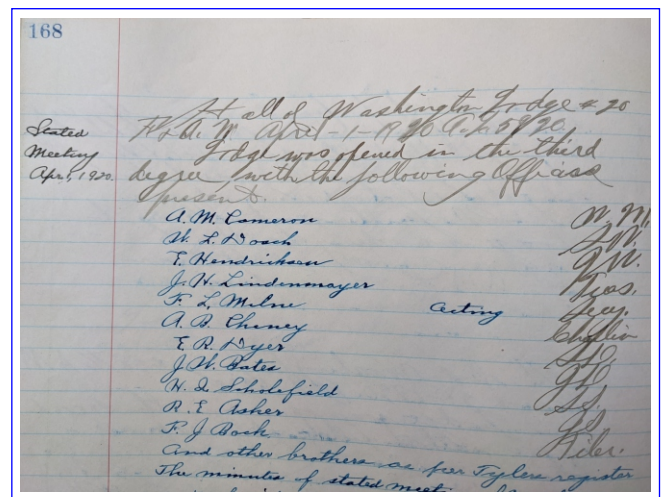 168
Hall of Washington Lodge # 20
F & A. M. April - 1 - 1920 A. L. 5920.
Stated
Meeting
Apr. 1, 1920.
Lodge was opened in the third
degree with the following Officers
present.
A. M. Cameron W. M.
W. L. Dosch S. W.
E. Hendrickson J. W.
J. H. Lindenmayer Treas.
F. L. Milne acting Secy.
A. B. Cheney Chaplin
E. R. Dyer S. D.
J. W. Bates J. D.
H. I. Scholefield S. S.
R. E. Asher J. S.
F. J. Bock Tiler.
And other brothers as per Tylers register
The minutes of stated meet